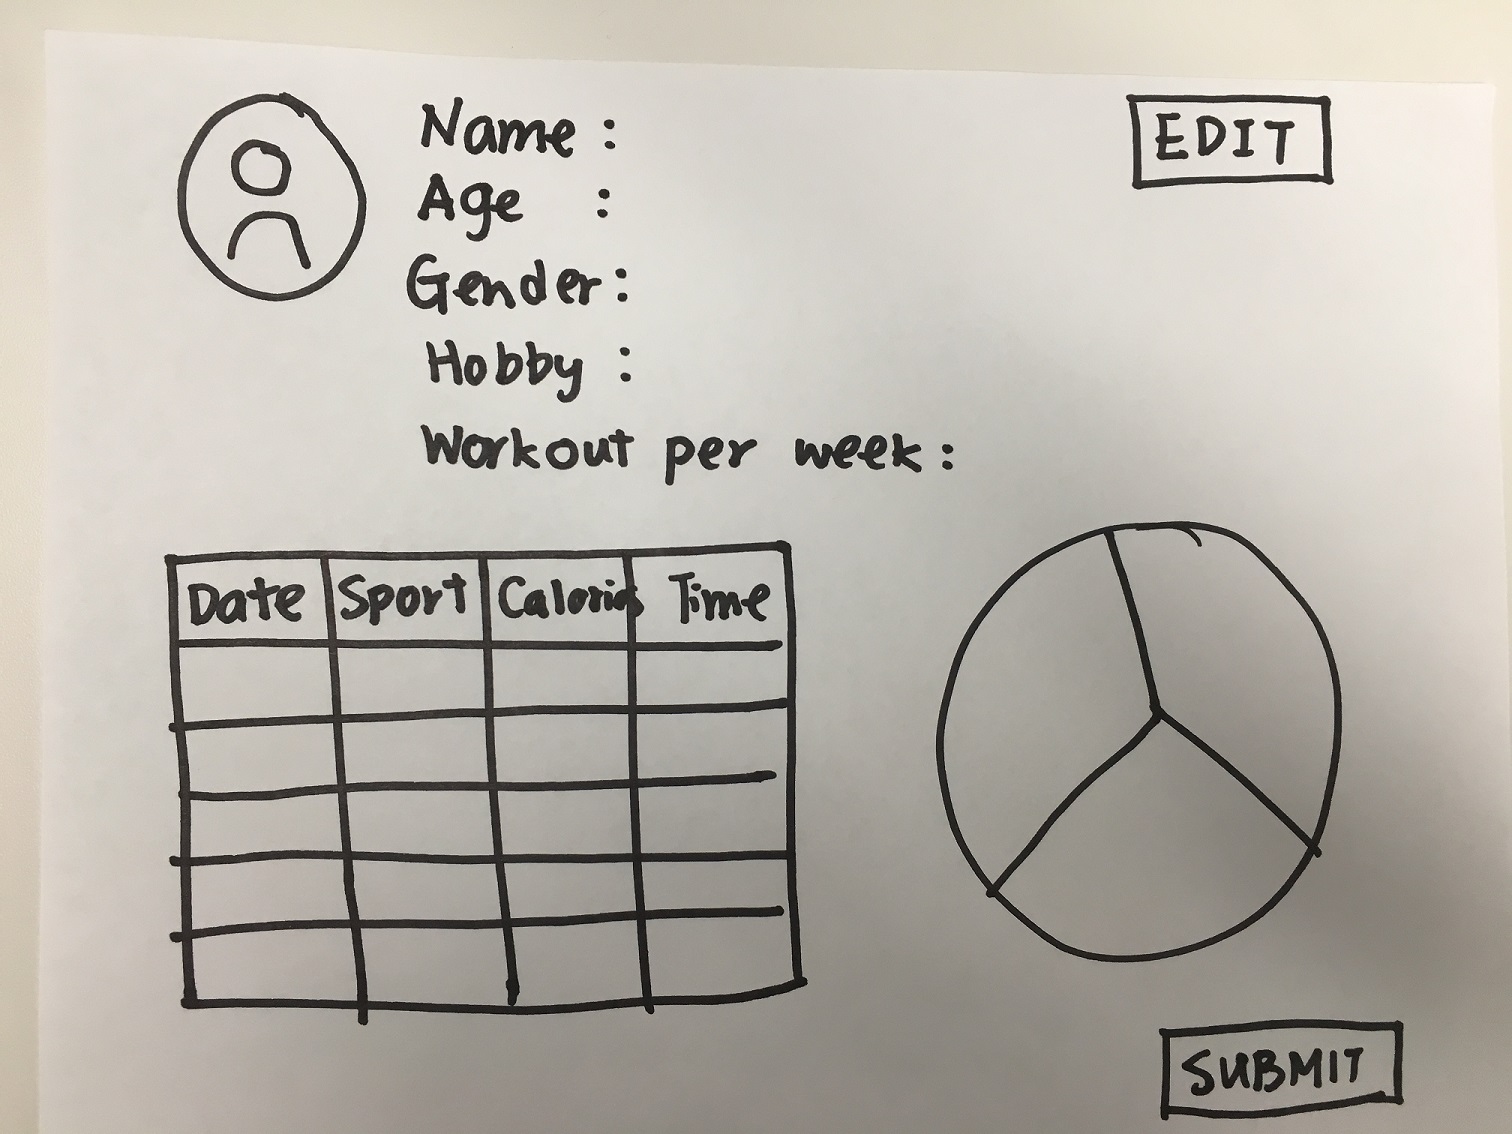 Name :
EDIT
Age :
Gender:
Hobby :
Workout per week:
Date Sport Calories Time
SUBMIT